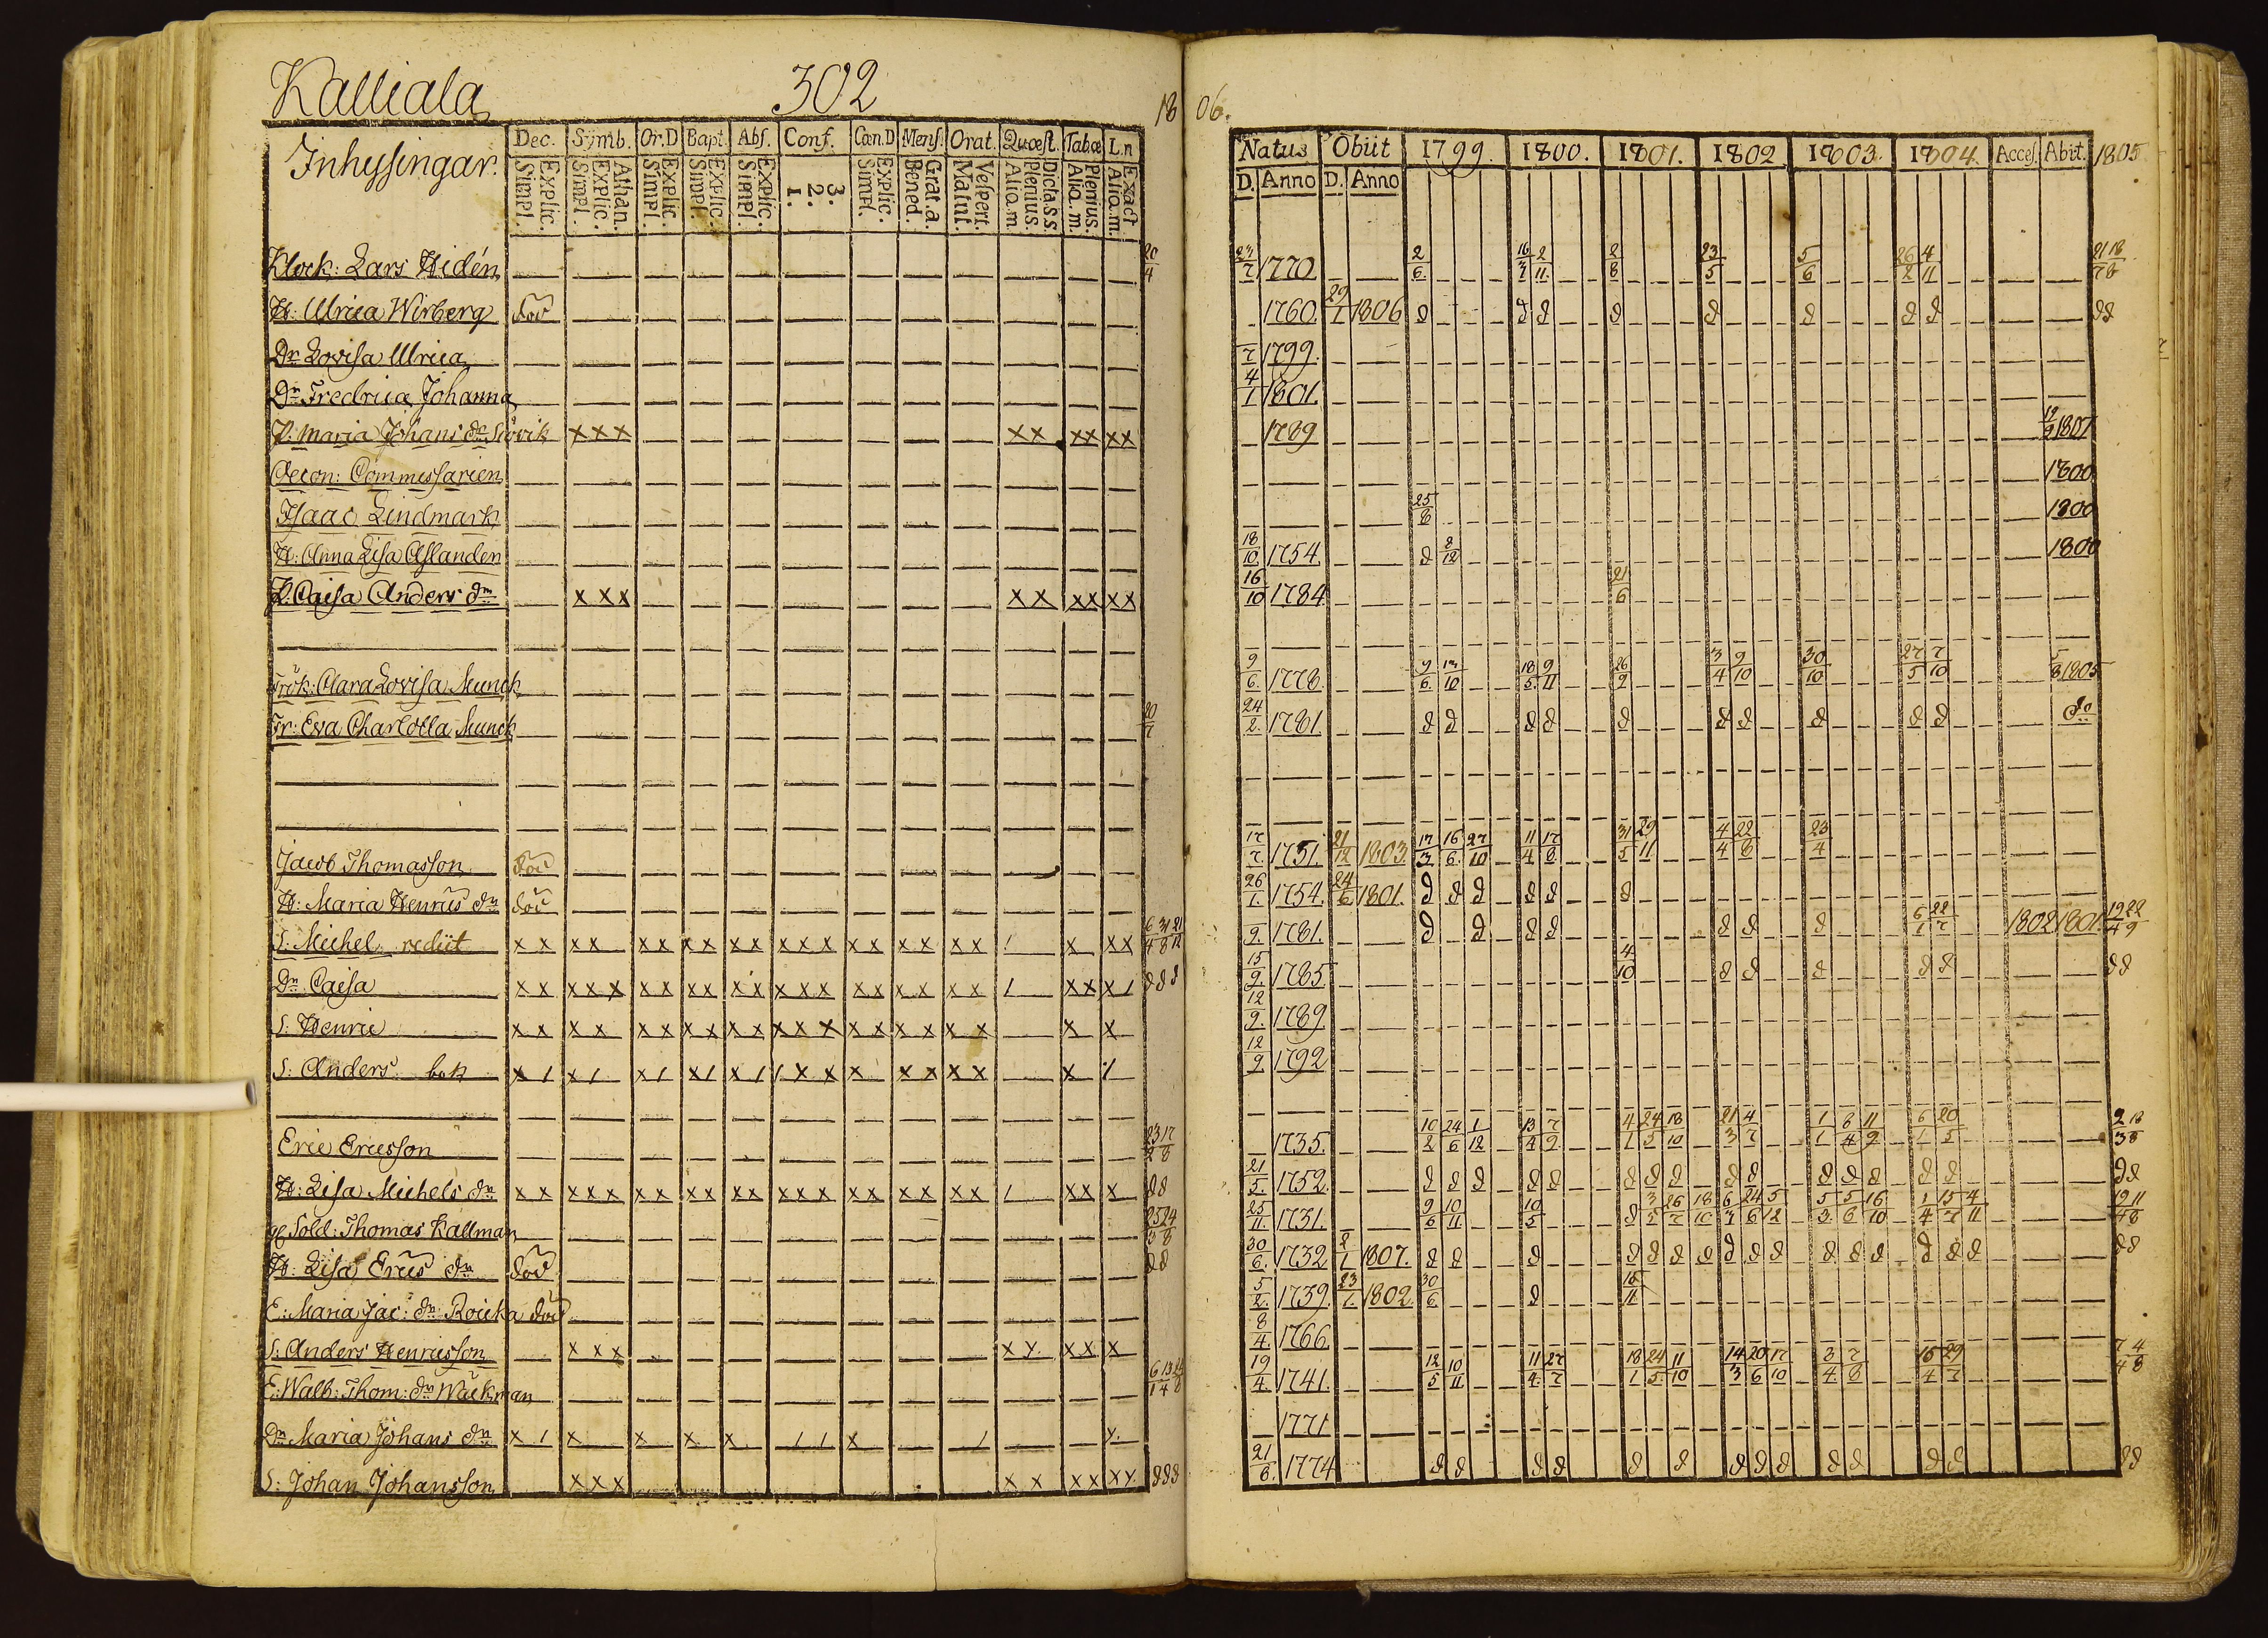 Kalliala 302
18 06.
Inhysingar. Dec. Symb. Or.D Bapt. Abs. Conf. Cœn.D Mens. Orat. Quæst. Tabæ L.n
Explic. Simpl. Athan. Explic. Simpl. Explic. Simpl. Explic. Simpl. Explic. Simpl. 3. 2. 1. Explic. Simpl. Grat.a. Bened. Vespert. Matut. Dicta.S.S Plenius. Alio.m. Plenius. Alio.m. Exact Alio.m.
Natus Obiit 1799. 1800. 1801. 1802 1803. 1804. Acces. Abit. 1805
D. Anno D. Anno
Klock: Lars Hidén 20/4 23/7 1770 2/6 16/3 2/11 2/8 23/5 5/6 26/2 4/11
H: Ulrica Wirberg död 1760 29/1 1806 d d d d d d d d d d
Dr Lovisa Ulrica 7 1799.
Dr Fredrica Johanna 4/1 1801.
P: Maria Johans dr x x x x x x x x x 1789 1807
Oecon: Commissarien 1800
Isaac Lindmark 25/8 1800
H: Anna Lisa Aslanden 18/10 1754 d 8/12 1800
P. Caisa Anders dr x x x x x x x x x 16/10 1784 21/6
Frök: Clara Lovisa Munck 9/6 1778 9/6 13/10 18/5 9/11 26/9 3/4 9/10 30/10 27/5 7/10 5/8 1805
Fr: Eva Charlotta Munck 20/7 24/2 1781 d d d d d d d d d d do
Jacob Thomasson död 17/7 1751. 21/12 1803. 17/3 16/6 27/10 11/4 17/8 31/5 29/11 4/4 22/8 23/4
H: Maria Henrics dr död 26/1 1754. 24/6 1801. d d d d d d
S: Michel rediit x x x x x x x x x x x x x x x x x x x 1 x x x 6/4 31/8 21/12 9 1781. d d d d d d d 6/1 22/7 1802 1801. 19/4 22/9
Dr Caisa x x x x x x x x x x x x x x x x x x x x 1 x x x 1 d d d 15/9 1785 4/10 d d d d d d d
S: Henric x x x x x x x x x x x x x x x x x x x x x 12/9 1789
S: Anders x 1 x 1 x 1 x 1 x 1 1 x x x x x x x x 12/9 1792
Eric Ericsson 23/2 17/8 1735. 10/2 24/6 1/12 13/4 7/9 4/1 24/5 18/10 21/3 4/7 1/1 8/4 11/9 6/1 20/5 2/3 18/8
H: Lisa Michels dr x x x x x x x x x x x x x x x x x x x x 1 x x x d d 21/5 1752. d d d d d d d d d d d d d d d d d
gl Sold: Thomas Kallman 25/3 24/8 25/11 1731. 9/6 10/11 10/5 d 3/5 26/7 18/10 6/3 24/6 5/12 5/3 5/6 16/10 1/4 15/7 4/11 19/4 11/8
H: Lisa Erics dr död d d 30/6 1732 2/1 1807. d d d d d d d d d d d d d d d d d d
E: Maria Jac: dr Roicka död 5/2 1739. 23/1 1802. 30/6 d 16/11
S: Anders Henricsson x x x x x x x x 8/4 1766
E: Walb: Thom: dr Wäckman 6/1 13/4 19/4 1741. 12/5 10/11 11/4 27/7 18/1 24/5 11/10 14/3 20/6 17/10 3/4 7/8 15/4 29/7 7/4 4/8
Dr Maria Johans dr x 1 x x x x 1 1 x 1 x 1771
S: Johan Johansson x x x x x x x x x d d d 21/6 1774 d d d d d d d d d d d d d d d